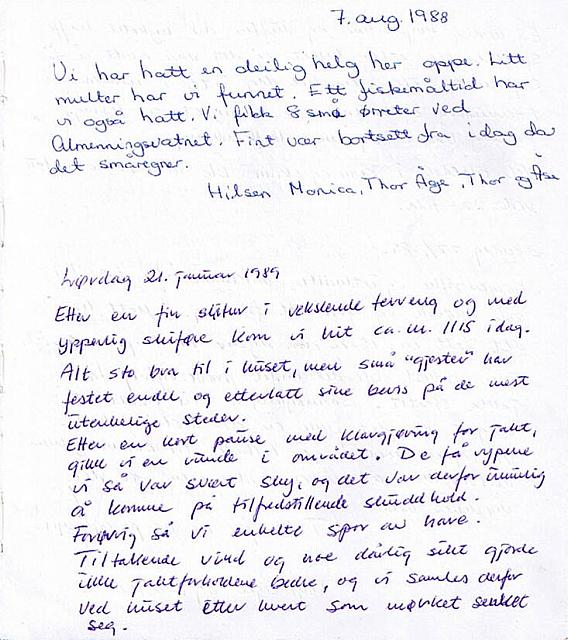 7. aug. 1988
Vi har hatt en deilig helg her oppe. Litt
multer har vi funnet. Ett fiskemåltid har
vi også hatt. Vi fikk 8 små ørreter ved
Almenningsvatnet. Fint vær bortsett fra i dag da
det småregner.
Hilsen Monica, Thor Åge, Thor og Åse
Lørdag 21. januar 1989
Etter en fin skitur i vekslende terreng og med
ypperlig skiføre kom vi hit ca. kl. 1115 i dag.
Alt sto bra til i huset, men små "gjester" har
festet endel og etterlatt sine bevis på de mest
utenkelige steder.
Etter en kort pause med klargjøring for jakt,
gikk vi en runde i området. De få rypene
vi så var svært sky, og det var derfor umulig
å komme på tilfredstillende skuddhold.
Forøvrig så vi enkelte spor av hare.
Tiltakende vind og noe dårlig sikt gjorde
ikke jaktforholdene bedre, og vi samles derfor
ved huset etter hvert som mørket senket
seg.